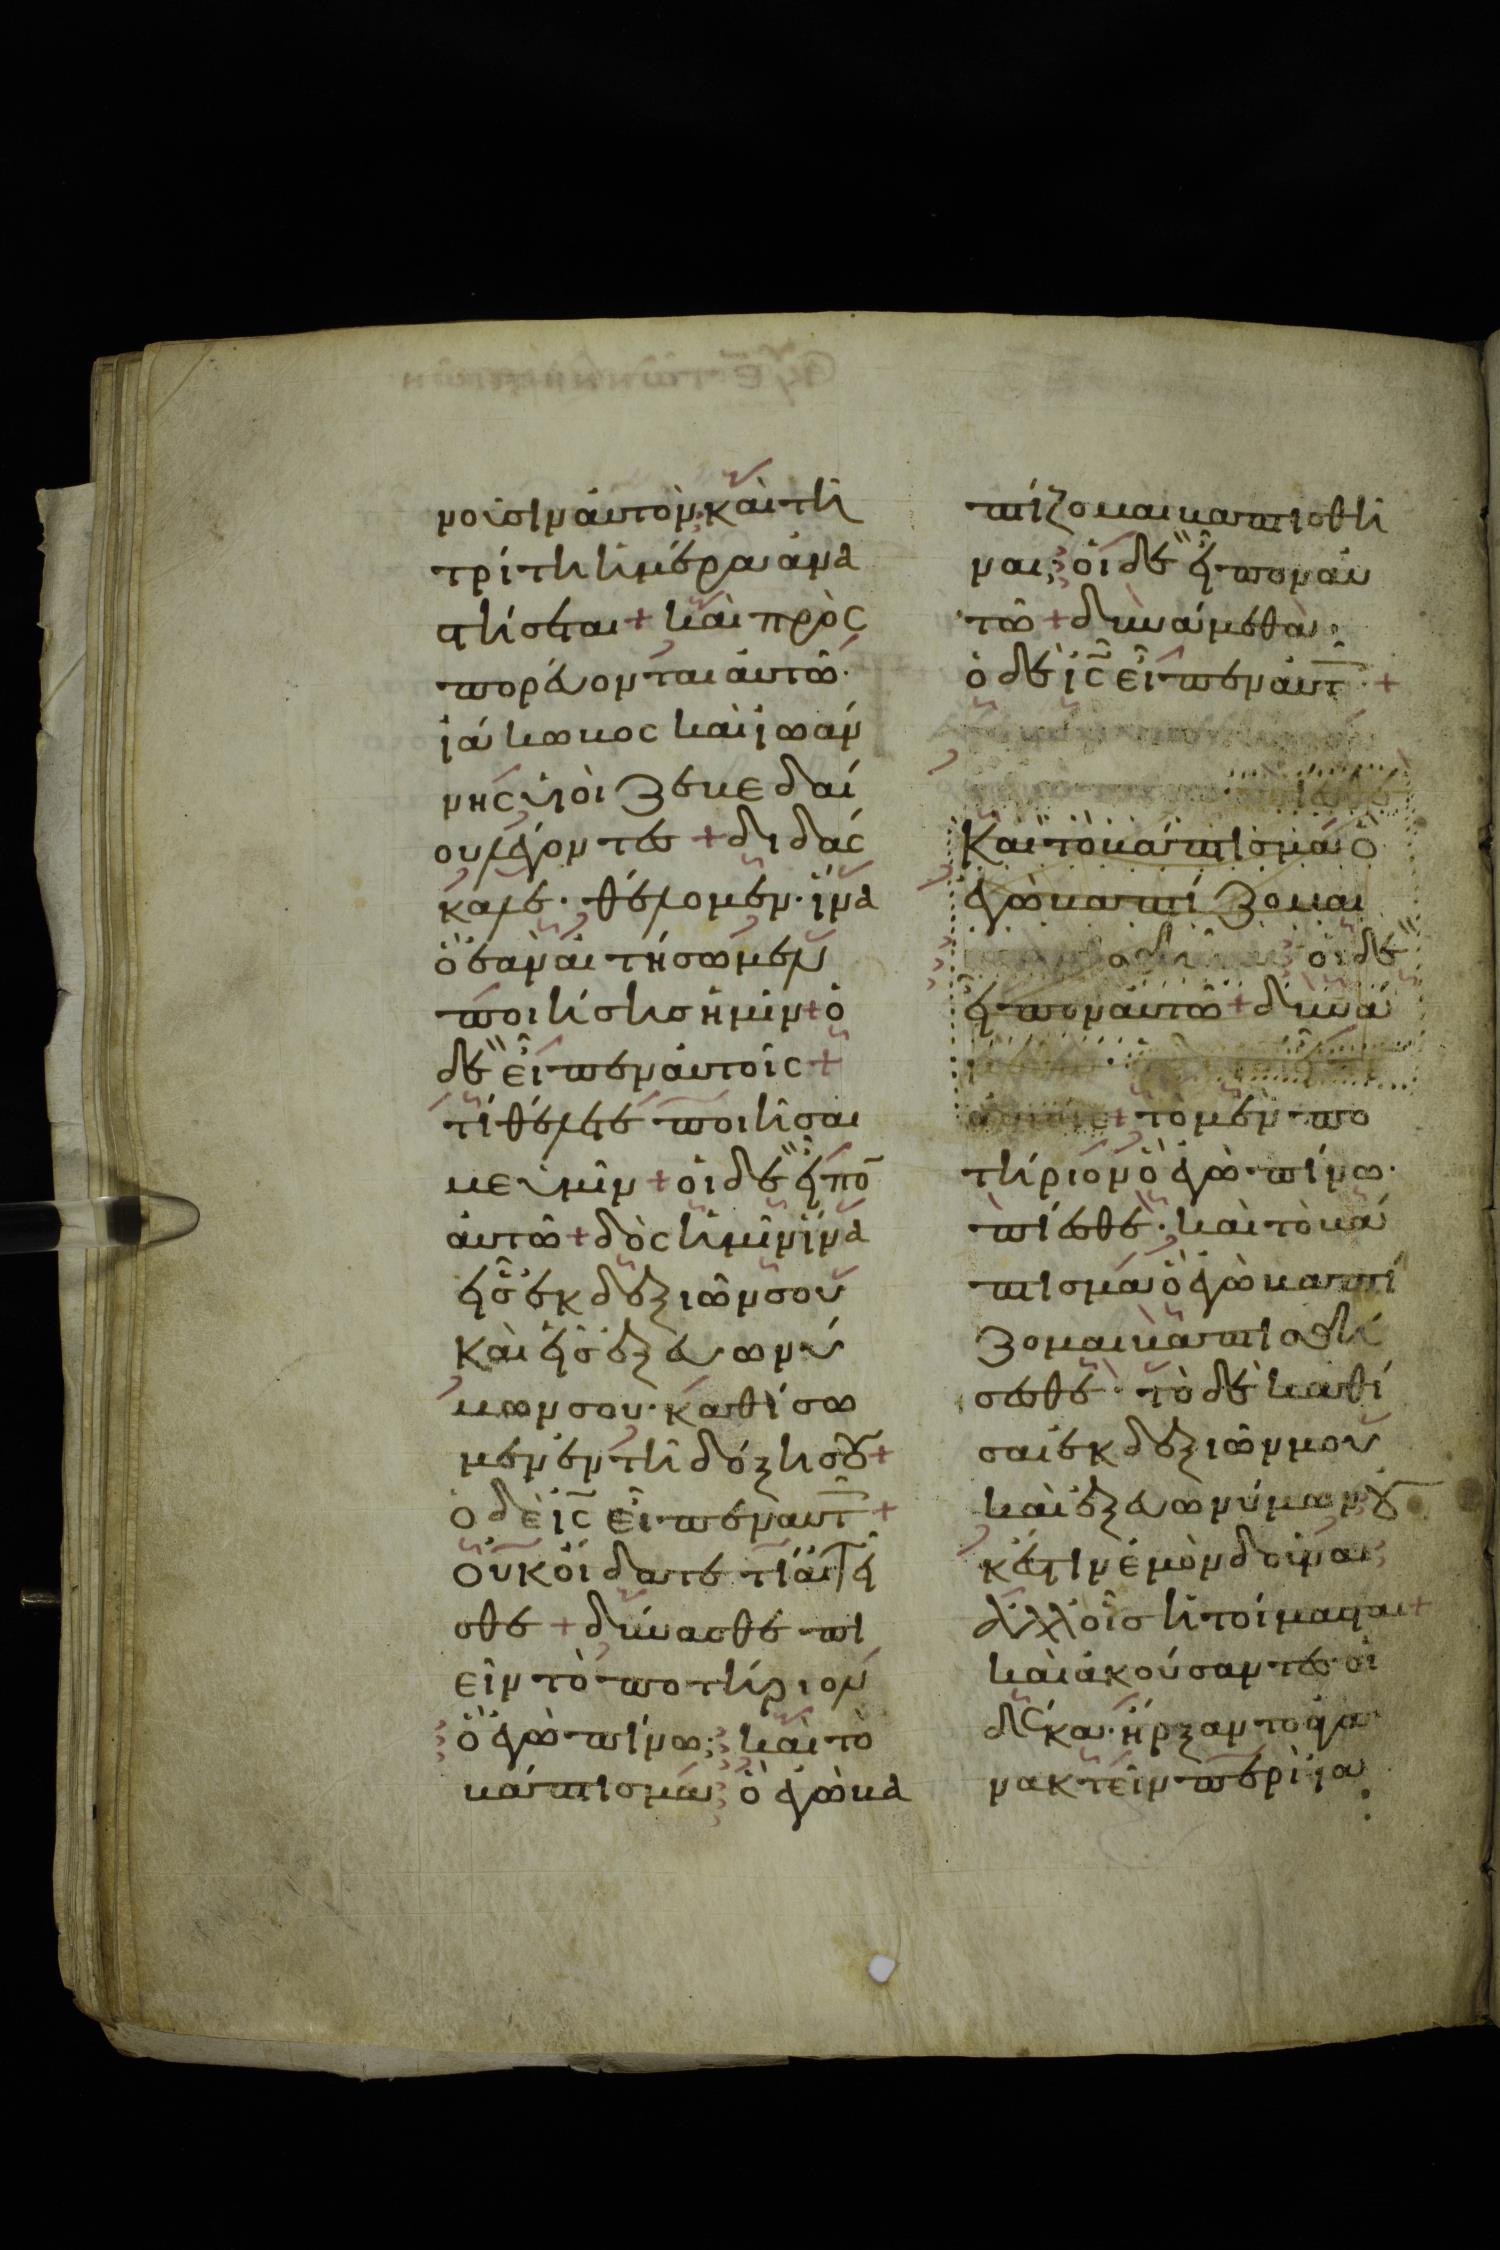 νοῦσιν αὐτὸν· καὶ τῆ
τρίτη ἡμέρα ἀνα
στήσεται + καὶ προς
πορεύονται αὐτῶ·
ἰάκωβος καὶ ἰωάν
νης υἱοὶ ζεβεδαί
ου λέγοντες + διδάς
καλε· θέλομεν· ἵνα
ὃ ἐὰν αἰτήσωμεν
ποιήσης ἡμῖν + ὁ
δὲ εἶπεν αὐτοῖς +
τί θέλετε ποιῆσαι
με ὑμῖν + οἱ δὲ εἶπο̄
αὐτῶ + δὸς ἡμῖν ἵνα
εἷς ἐκ δεξιῶν σου
καὶ εἷς ἐξ εὐωνύ
μων σου· καθίσω
μεν ἐν τῆ δόξη σου +
ὁ δὲ ις̄ εἶπεν αὐτ +
οὐκ οἴδατε τί αἰτεῖ
σθε + δύνασθε πι
εῖν τὸ ποτήριον
ὃ ἐγὼ πίνω; καὶ τὸ
βάπτισμα ὃ ἐγὼ βα
πτίζομαι βαπτισθῆ
ναι; οἱ δὲ εἶπον αὐ
τῶ + δυνάμεθα·
ὁ δὲ ις̄ εἶπεν αὐτ +
καὶ τὸ βάπτισμα ὃ
ἐγὼ βαπτίζομαι
οἱ δὲ
εἶπον αὐτῶ + δυνά
+ τὸ μὲν πο
τήριον ὃ ἐγὼ πίνω·
πίεσθε· καὶ τὸ βά
πτισμα ὃ ἐγὼ βαπτί
ζομαι βαπτισθή
σεσθε· τὸ δὲ καθί
σαι ἐκ δεξιῶν μου
καὶ ἐξ εὐωνύμων ου
κ ἔστιν ἐμὸν δοῦναι
ἀλλ οἷς ἡτοίμασται +
καὶ ἀκούσαντες οἱ
δέκα· ἤρξαντο ἀγα
νακτεῖν περὶ ἰα